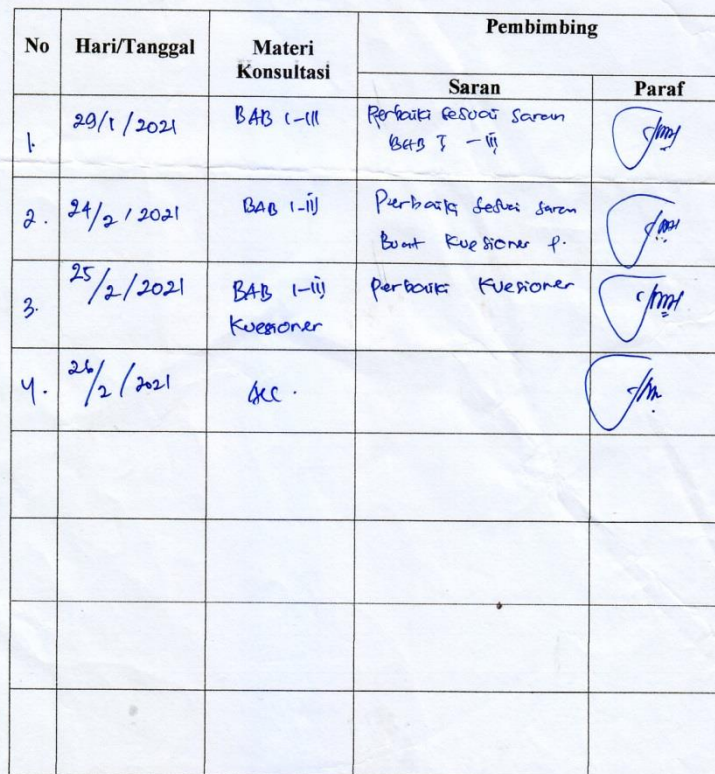 No Hari/Tanggal Materi Konsultasi Pembimbing
Saran Paraf
1. 29/1/2021 BAB I-III Perbaiki sesuai saran
BAB I - III
2. 24/2/2021 BAB I-III Perbaiki sesuai saran
Buat Kuesioner p.
3. 25/2/2021 BAB I-III Perbaiki Kuesioner
Kuesioner
4. 26/2/2021 Acc.